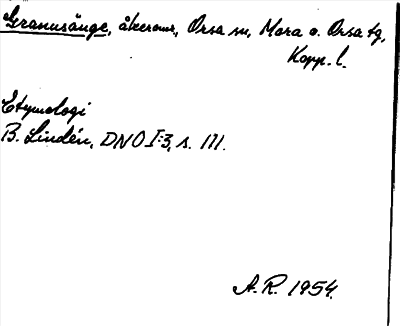 Granusänge, åkeromr, Orsa sn, Mora o. Orsa tg,
Kopp. l.
Etymologi
B. Lindén, DNO I:3, s. 111.
A. R. 1954.